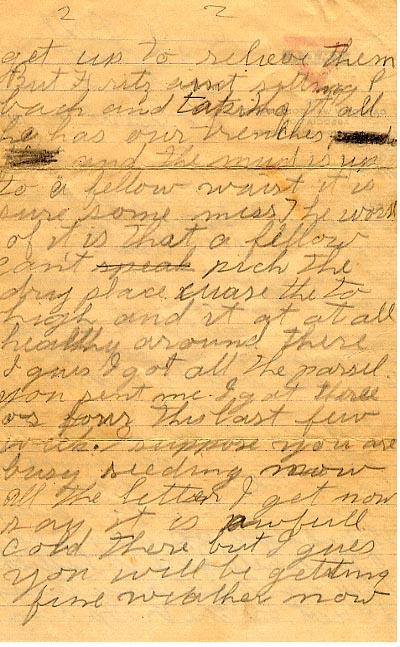 2 2
get up to relieve them
But Fritz aint sitting
back and taking it all
he has our trenches
and the mud is up
to a fellow waist it is
sure some mess the worst
of it is that a fellow
cant speak pich the
dry place cuase the to
high and it at at all
healthy around there
I gues I got all the parsel
you sent me. I got three
or four this last few
week. I suppose you are
busy seeding now
all the letter I get now
say it is awfull
cold there but I gues
you will be getting
fine weather now